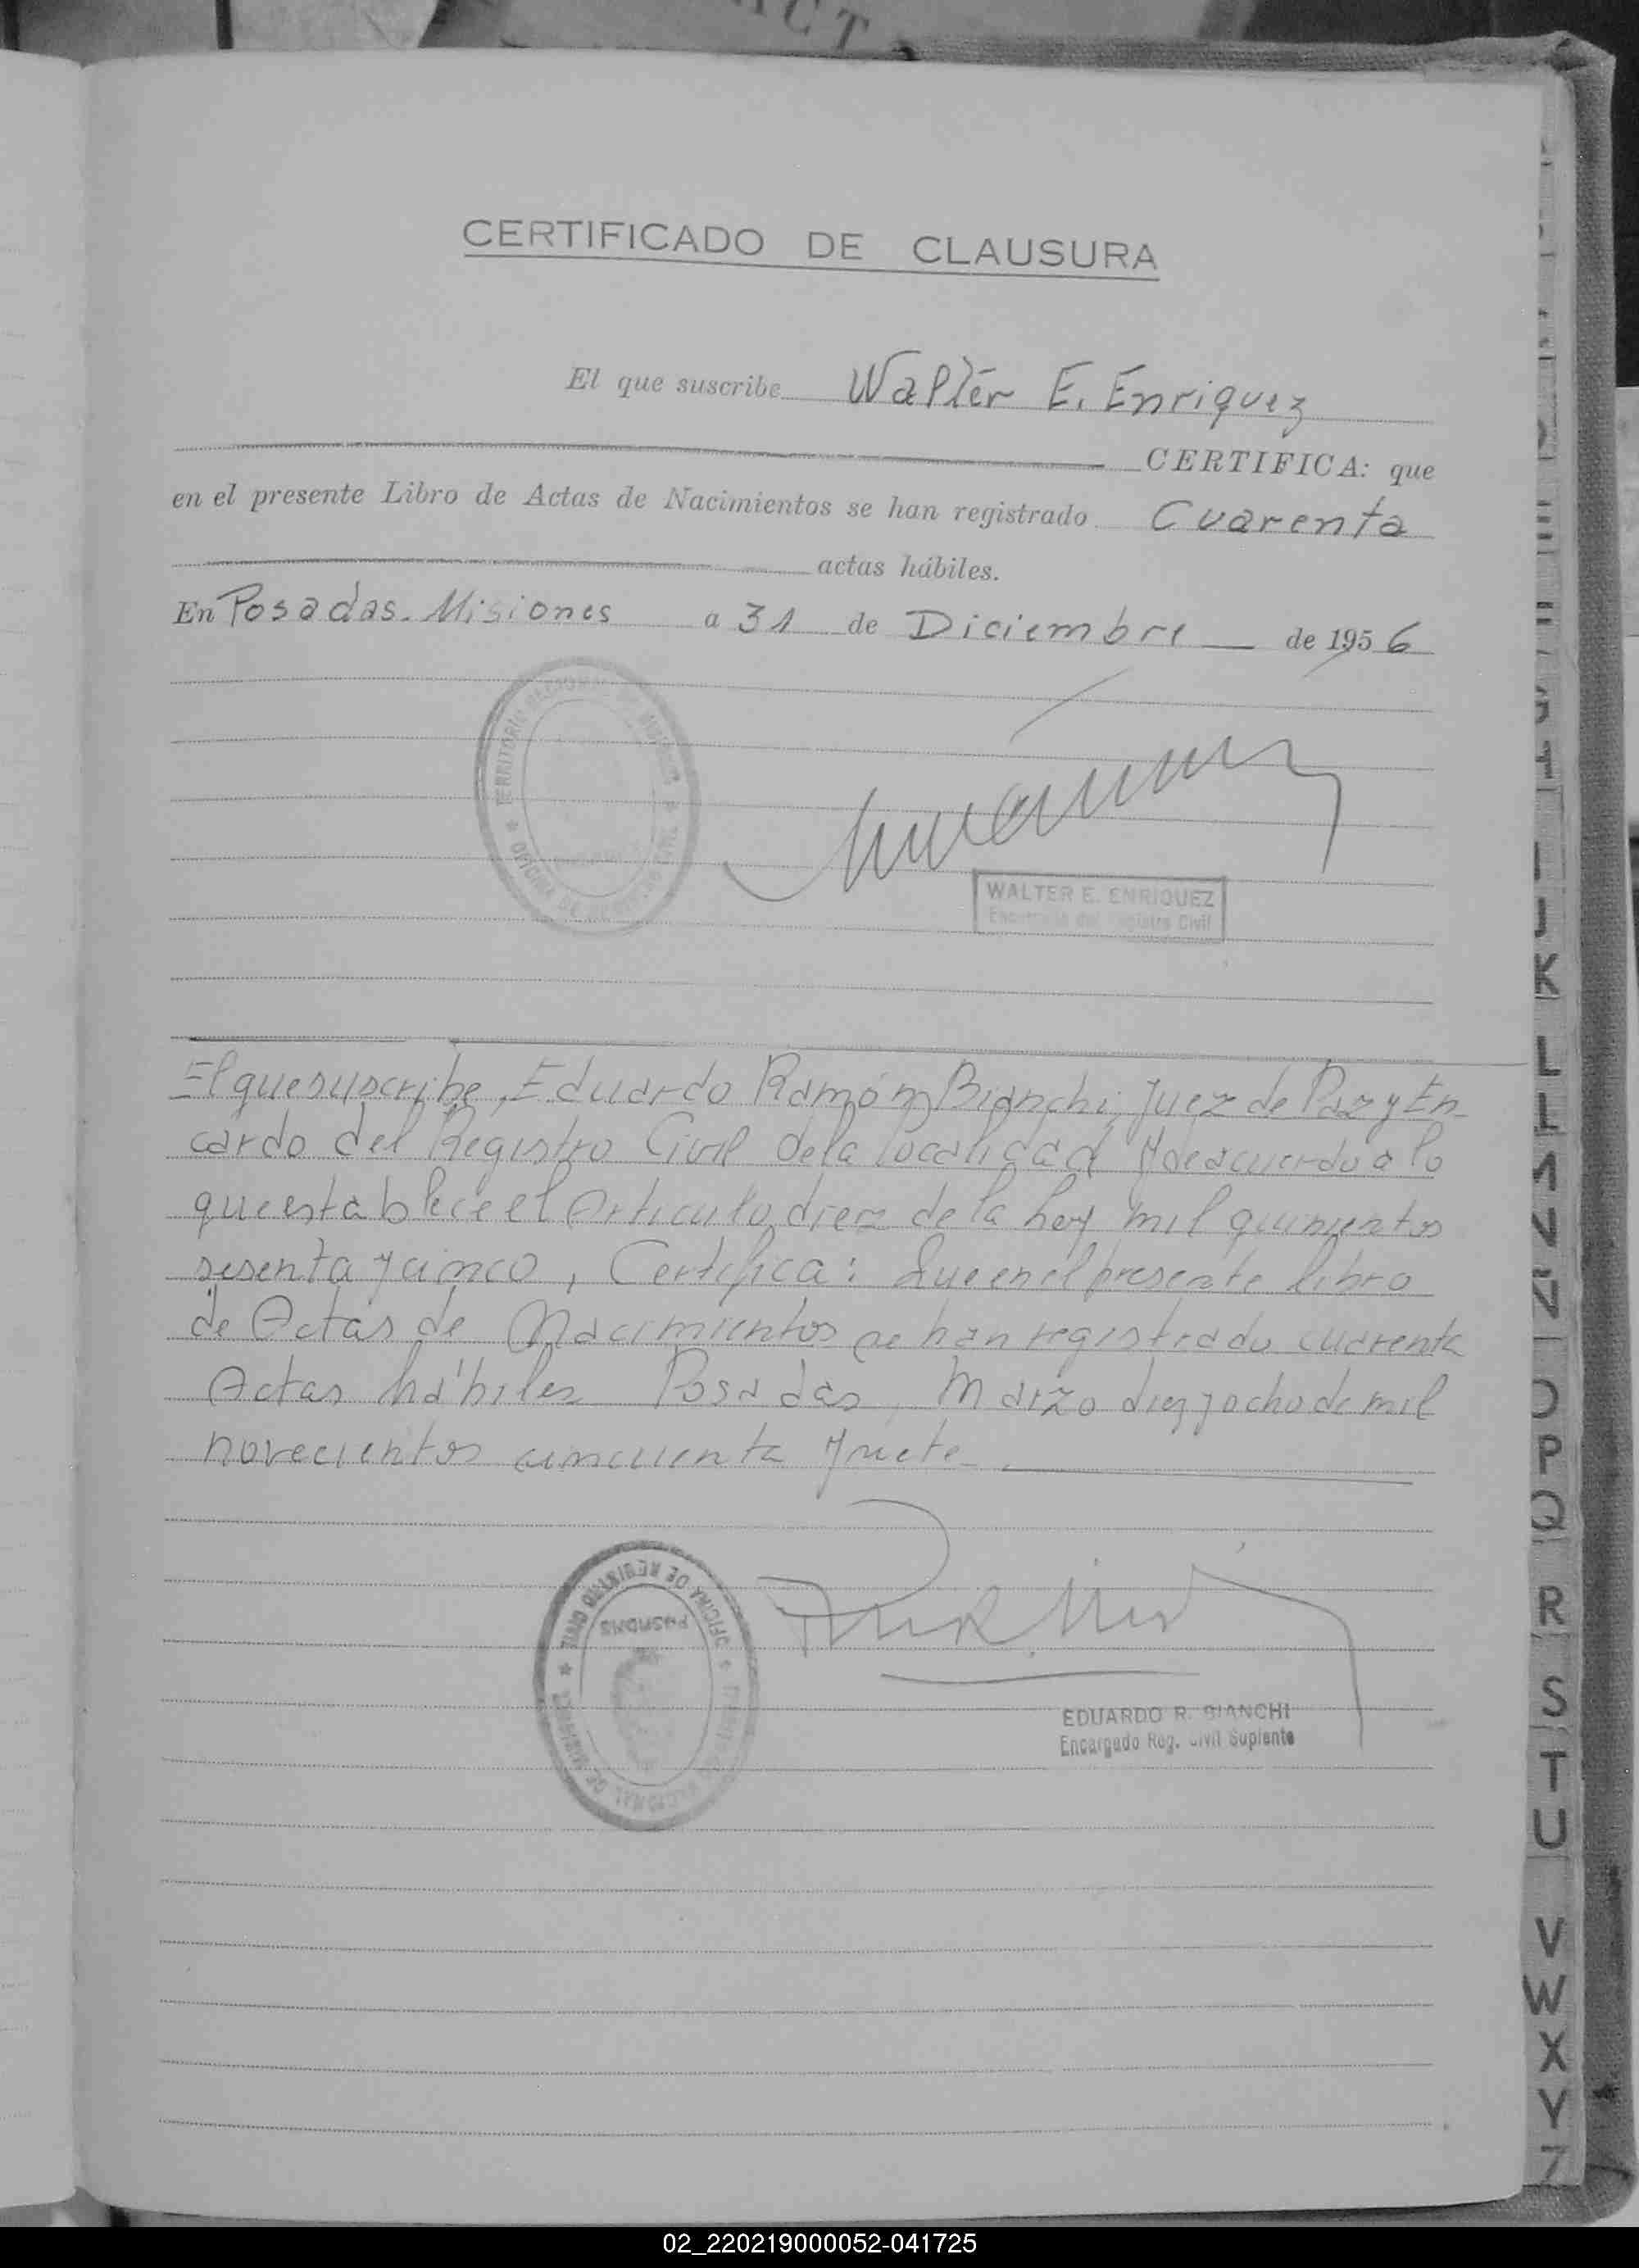 ACT
CERTIFICADO DE CLAUSURA
El que suscribe Walter E. Enriquez
CERTIFICA: que
en el presente Libro de Actas de Nacimientos se han registrado Cuarenta
actas hábiles.
En Posadas. Misiones a 31 de Diciembre de 1956
TERRITORIO NACIONAL DE MISIONES
OFICINA DE REGISTRO CIVIL
WALTER E. ENRIQUEZ
Encargado del Registro Civil
El que suscribe, Eduardo Ramón Bianchi, Juez de Paz y En-
cardo del Registro Civil de la localidad y de acuerdo a lo
que establece el Artículo diez de la ley mil quinientos
sesenta y cinco, Certifica: Que en el presente libro
de Actas de Nacimientos se han registrado cuarenta
Actas hábiles Posadas, Marzo diez y ocho de mil
novecientos cincuenta y siete.
OFICINA DE REGISTRO CIVIL
POSADAS
NACIONAL DE MISIONES
EDUARDO R. BIANCHI
Encargado Reg. Civil Suplente
K
L
LL
M
N
Ñ
O
P
Q
R
S
T
U
V
W
X
Y
Z
02_220219000052-041725